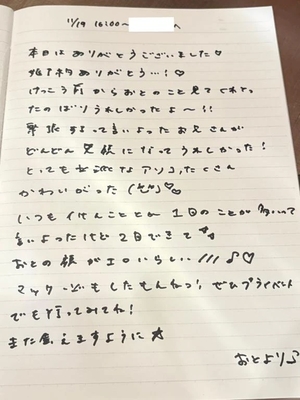 11/19 16:00〜 へ
本日はありがとうございました♡
指名ありがとう…!♡
けっこう前からおとのこと見てくれてた
のばりうれしかったよ〜!!
緊張するって言いよったお兄さんが
どんどん になってうれしかった!
とっても なアソコたくさん
かわいがった ♡♡
いつもイけんこととか1回のことが多いって
言いよったけど2回できて
おとの顔がエロいらしい///♪♡
マックの もしたもんねっ! ぜひプライベート
でも行ってみてね!
また会えますように☆
おとより♪